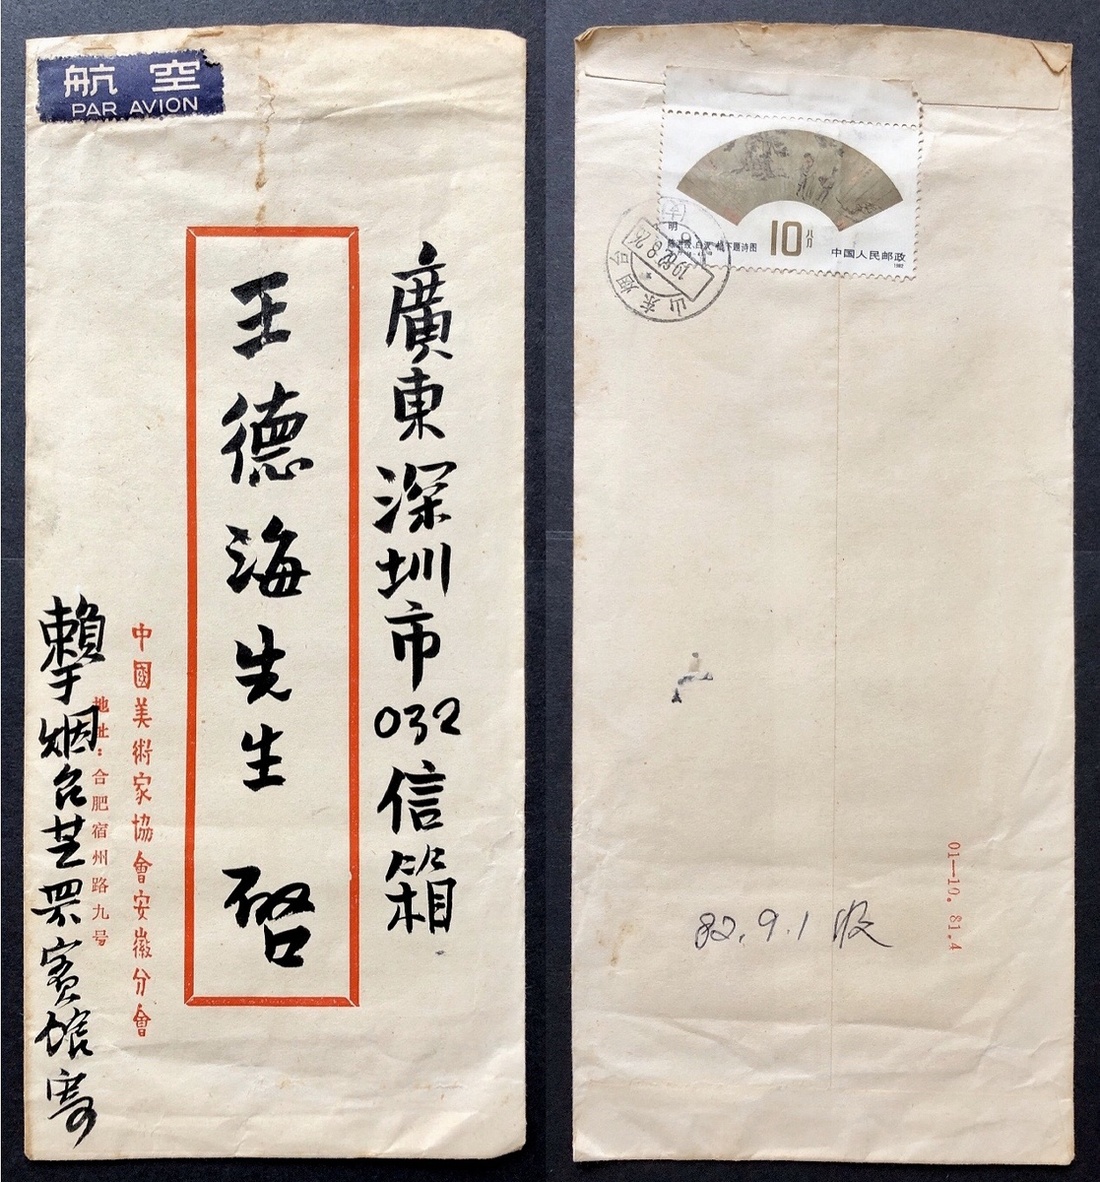 航空
PAR AVION
廣東深圳市032信箱
王德海先生 啓
中國美術家協會安徽分會
地址：合肥宿州路九号
賴于烟台芝罘賓館寄
明
下题诗图
10分
中国人民邮政
1982
山东烟台
1982.8.26
82.9.1 收
01—10. 81.4